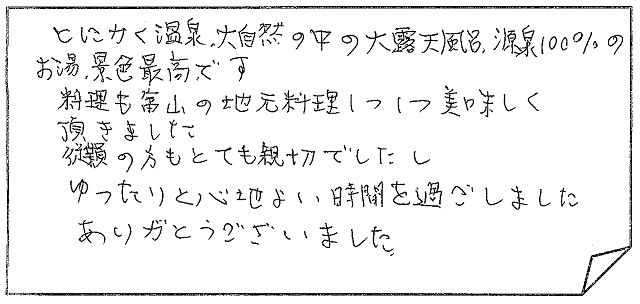 とにかく温泉、大自然の中の大露天風呂、源泉100%の
お湯、景色最高です
料理も富山の地元料理1つ1つ美味しく
頂きました
従業員の方もとても親切でしたし
ゆったりと心地よい時間を過ごしました
ありがとうございました。